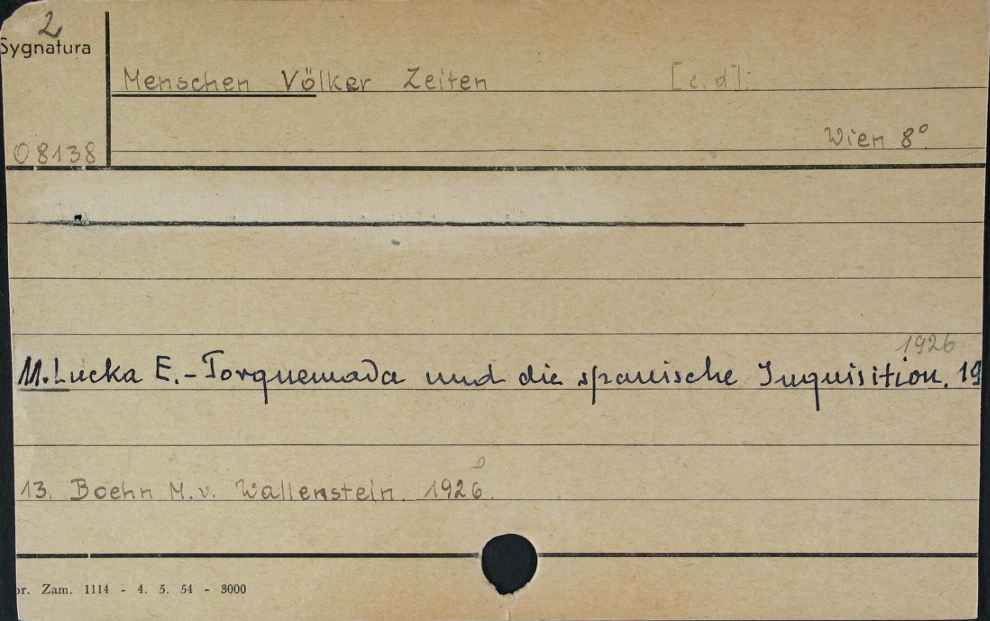 2
Sygnatura
Menschen Völker Zeiten [c.d]:
Wien 8°.
08138
1926
11. Lucka E. - Torquemada und die spanische Inquisition. 19
13. Boehn M. v. Wallenstein. 1926.
or. Zam. 1114 - 4. 5. 54 - 3000